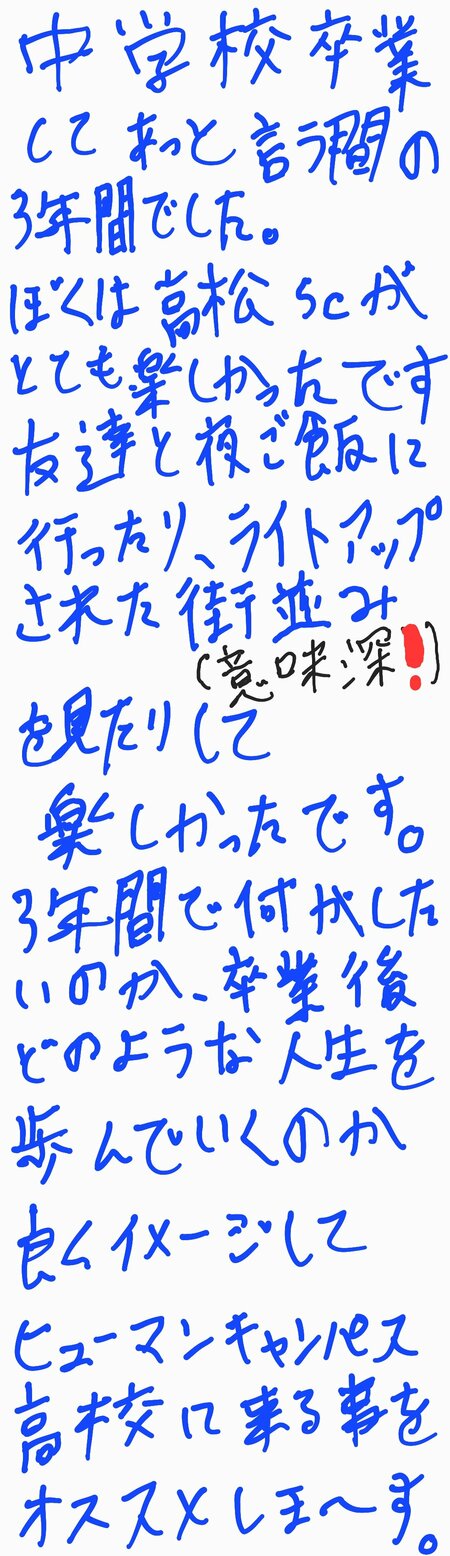 中学校卒業
してあっと言う間の
3年間でした。
ぼくは高松scが
とても楽しかったです
友達と夜ご飯に
行ったり、ライトアップ
された街並み
(意味深!)
を見たりして
楽しかったです。
3年間で何がした
いのか、卒業後
どのような人生を
歩んでいくのか
良くイメージして
ヒューマンキャンパス
高校に来る事を
オススメしま〜す。